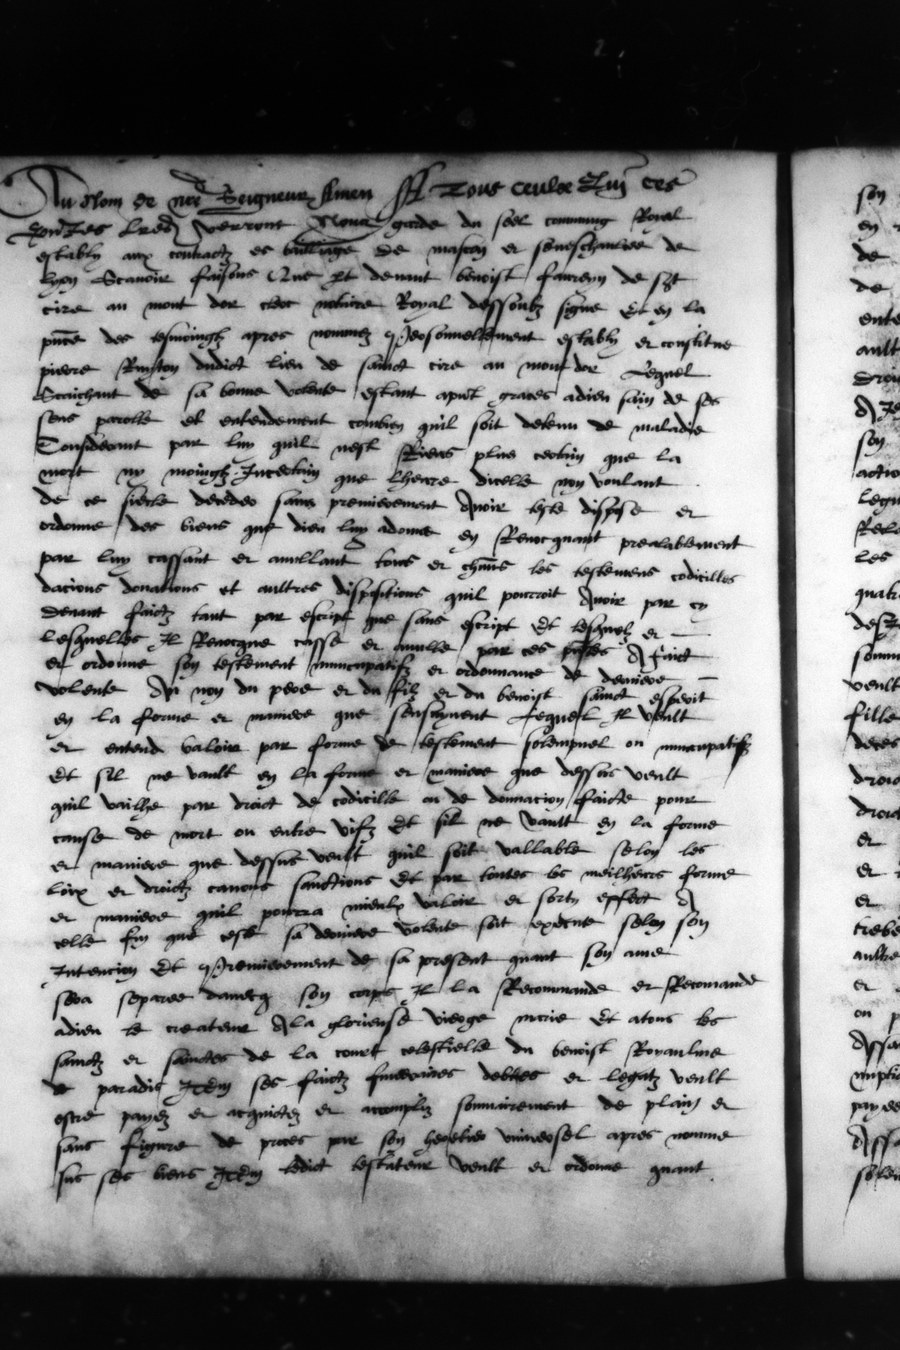 Au Nom de nre Seigneur Amen A Tous ceulx Qui ces
pntes Lres verront Nous garde du seel commung Royal
estably aux contractz es bailliage de mascon et seneschaulcee de
lyon Scavoir faisons Que Par devant benoist faureny de st
cire au mont dor clerc notaire Royal dessoubz signe Et en la
pnce des tesmoingtz apres nommez Personnellement estably et constitue
pierre dudict lieu de sainct cire au mont dor Lequel
Scaichant de sa bonne volente estant aprest graces a dieu sain de ses
sens parolle et entendement combien quil soit detenu de maladie
Considerant par luy quil nest Riens plus certain que la
mort ny moingtz Incertain que lheure dicelle non voulant
de ce siecle deceder sans premierement Avoir teste dispose et
ordonne des biens que dieu luy a donne en Revocquant prealablement
par luy cassant et anullant tous et chuns les testemens codicilles
dacions donations et aultres dispositions quil pourroit Avoir par cy
devant faictz tant par escript que sans escript Et lesquelz et
lesquelles Il Revocque casse et anulle par ces pntes A faict
et ordonne son testement nuncupatifz et ordonnance de derniere
volente Au non du pere et du filz et du benoist sainct esperit
en la forme et maniere que sensuyvent Lequel Il veult
et entend valoir par forme de testement solempnel ou nuncupatifz
Et sil ne vault en la forme et maniere que dessus veult
quil vailhe par droict de codicille ou de donnacion faicte pour
cause de mort ou entre vifz Et sil ne vault en la forme
et maniere que dessus veult quil soit vallable selon les
loix et droictz canons sanctions Et par toutes les meilheurs forme
et maniere quil pourra mieulx valoir et sortir effect A
celle fin que ceste sa derniere volente soit execute selon son
Intencion Et Premierement de sa present quant son ame
sera separee davecq son corps Il la Recommande et Recomande
a dieu le createur A la glorieuse vierge marie Et a tous les
sainctz et sainctes de la court celestielle du benoist Royaulme
de paradis Item ses faictz funeraires debtes et legatz veult
estre payez et acquictez et accompliz sommairement de plain et
sans figure de proces par son heretier universel apres nomme
sus ses biens Item ledict testateur veult et ordonne quant